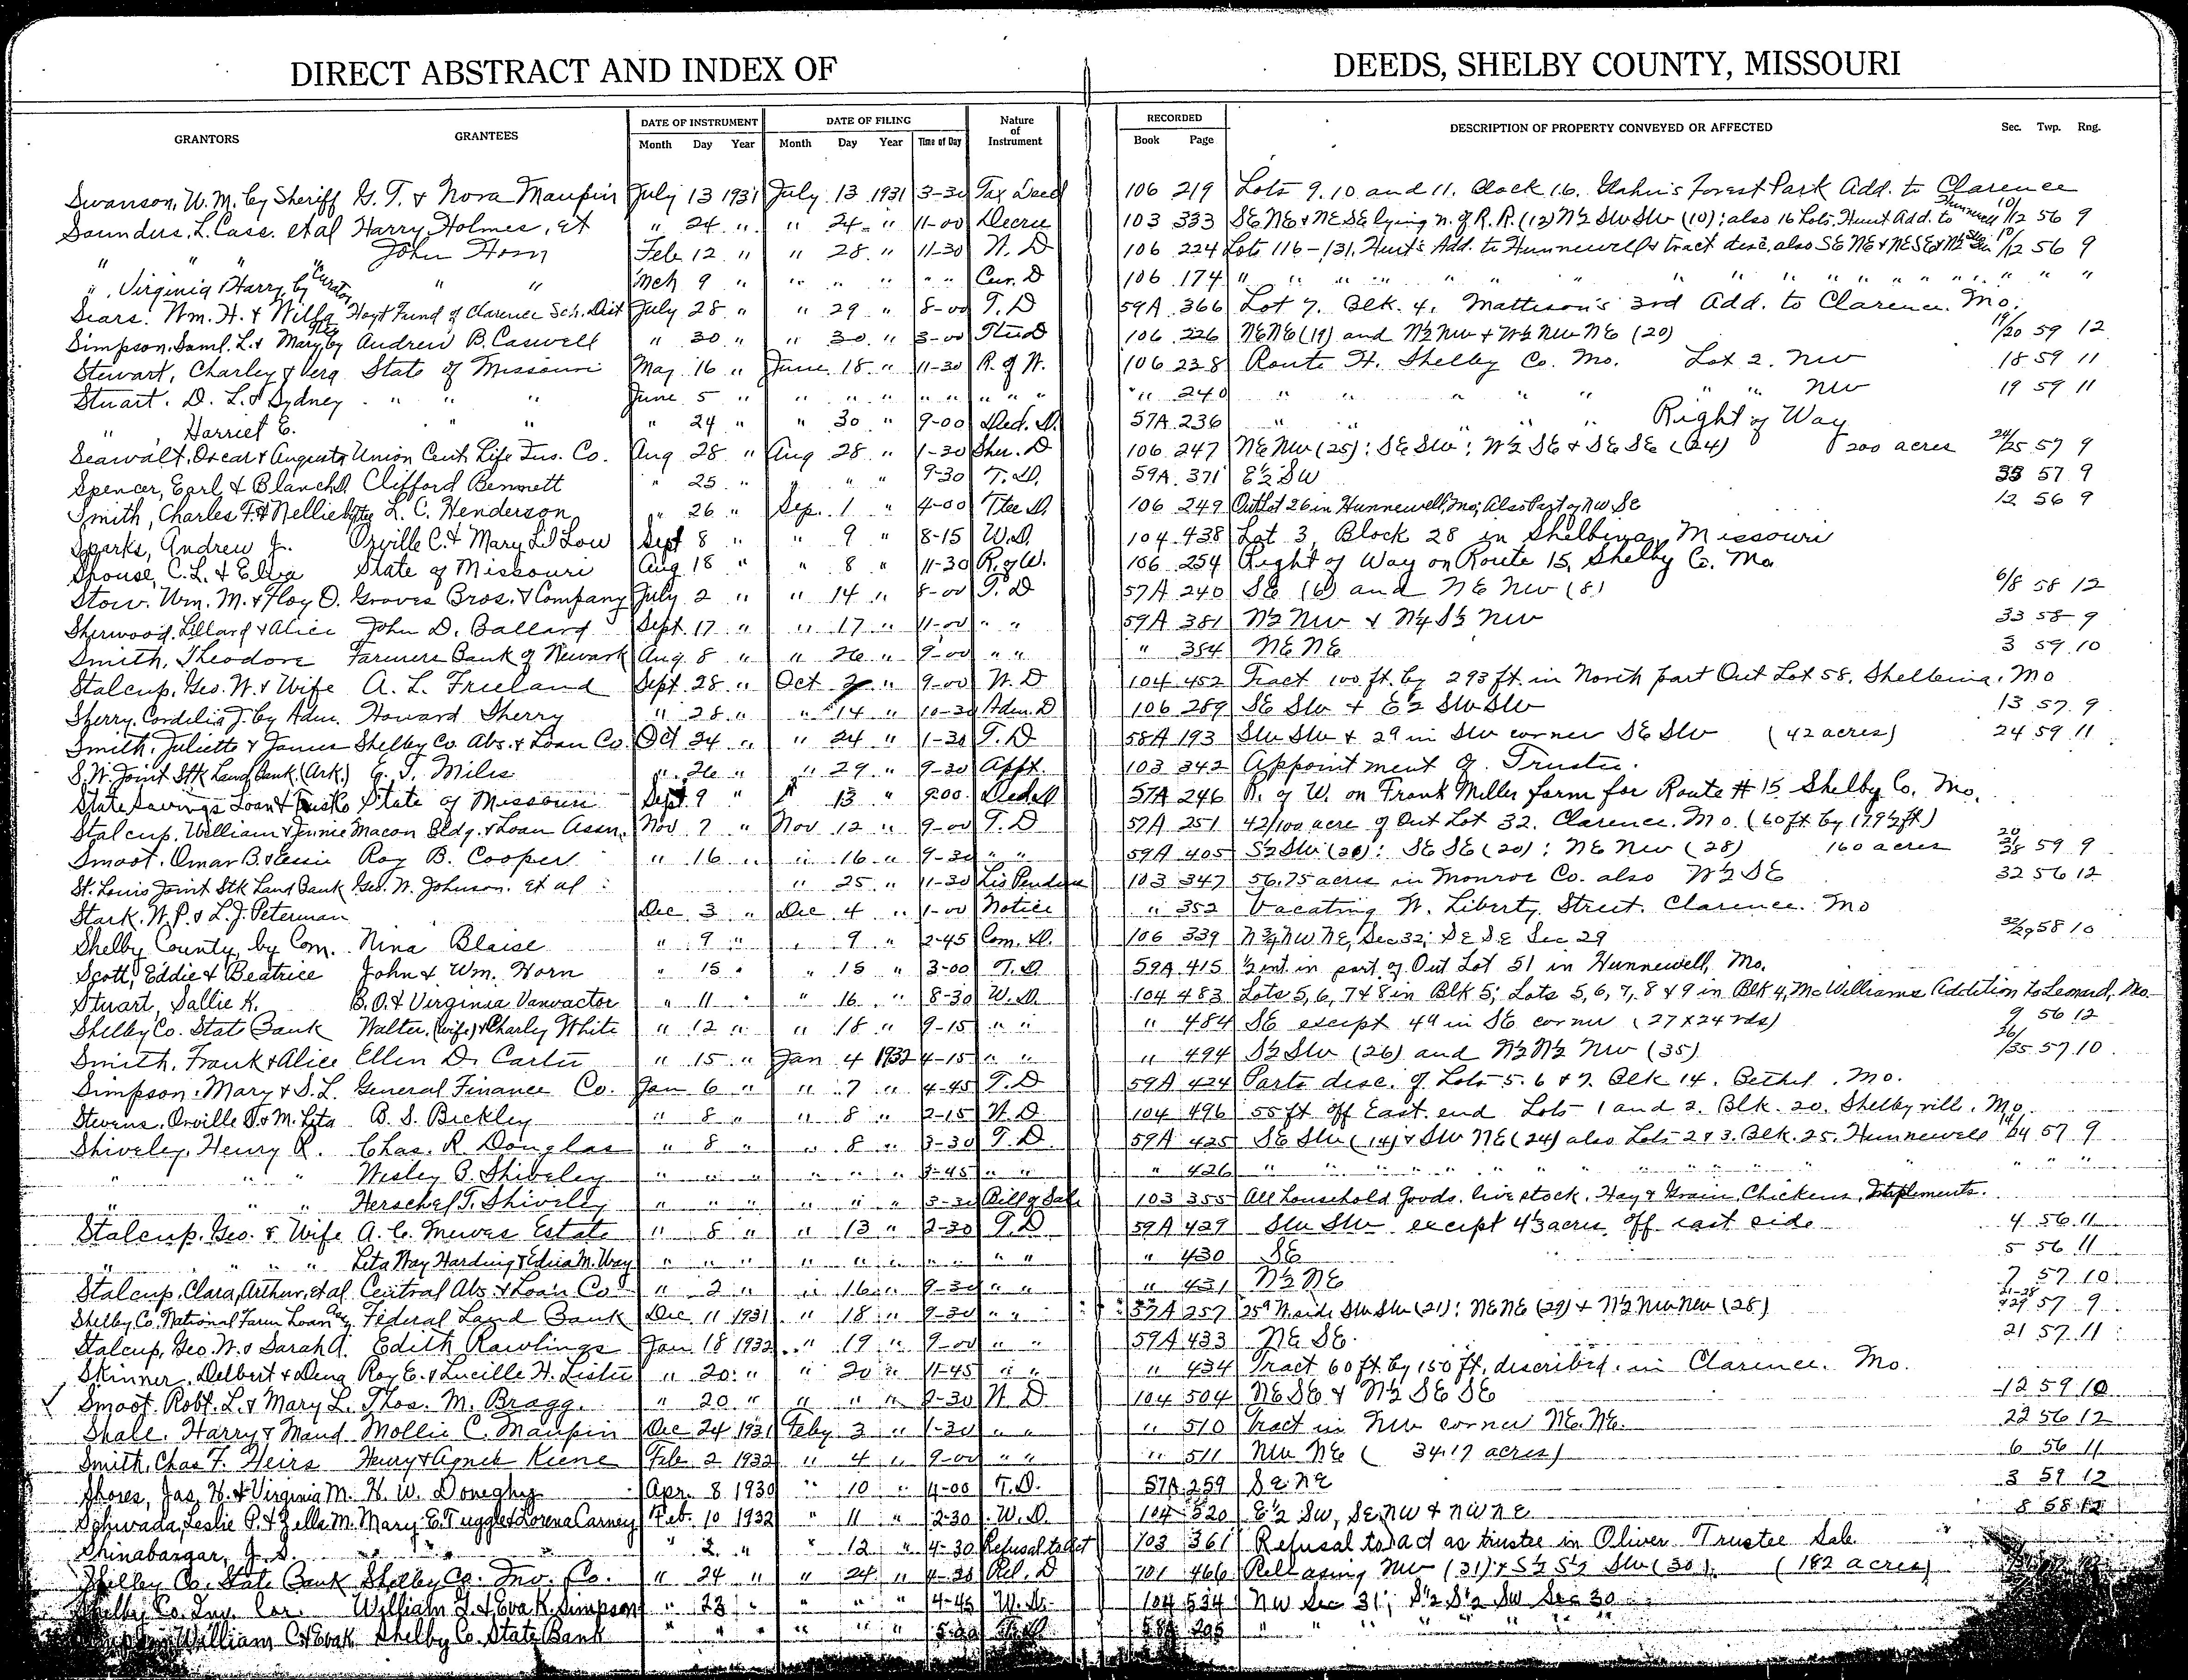 DIRECT ABSTRACT AND INDEX OF DEEDS, SHELBY COUNTY, MISSOURI
GRANTORS GRANTEES DATE OF INSTRUMENT Month Day Year DATE OF FILING Month Day Year Time of Day Nature of Instrument RECORDED Book Page DESCRIPTION OF PROPERTY CONVEYED OR AFFECTED Sec. Twp. Rng.
Swanson, W. M. by Sheriff G. T. & Nora Maupin July 13 1931 July 13 1931 3-30 Tax Deed 106 219 Lots 9. 10 and 11. Block 16. Forest Park Add. to Clarence
Saunders, L. Cass. et al Harry Holmes, et " 24 " " 24 " 11-00 Decree 103 333 SE NE & NE SE lying n. of R.R. (12) N½ SW SW (10); also 16 Lots, Hunt Add. to Hunnewell 10/12 56 9
" " " John Horn Feb 12 " " 28 " 11-30 W. D 106 224 Lots 116-131, Hunt's Add. to Hunnewell & tract desc, also SE NE & NE SE & N½ 10/12 56 9
" , Virginia Harry, by Curator " " Mch 9 " " " " " " Cur. D 106 174 " " " " " " " " " " " " " " "
Sears. Wm. H. & Willa Hoyt Fund of Clarence Sch. Dist July 28 " " 29 " 8-00 T. D 59A 366 Lot 7. Blk. 4. Mattison's 3rd Add. to Clarence. Mo.
Simpson, Saml. L. & Mary by Andrew B. Caswell " 30 " " 30 " 3-00 106 226 NE NE (19) and N½ NW & W½ NW NE (20) 19/20 59 12
Stewart, Charley & Vera State of Missouri May 16 " June 18 " 11-30 R. of W. 106 228 Route H. Shelby Co. Mo. Lot 2. NW 18 59 11
Stuart. D. L. & Sydney " " " June 5 " " " " " " " " " 240 " " " " " " " NW 19 59 11
" , Harriet E. " " " 24 " " 30 " 9-00 Ded. D. 57A 236 " " " " Right of Way
Seawalt, Oscar & Augusta Union Cent. Life Ins. Co. Aug 28 " Aug 28 " 1-30 Sher. D 106 247 NE NW (25); SE SW; W½ SE & SE SE (24) 200 acres 24/25 57 9
Spencer, Earl & Blanch D. Clifford Bennett " 25 " " " " 9-30 T. D. 59A 371 E½ SW 33 57 9
Smith, Charles F. & Nellie by Ttee L. C. Henderson " 26 " Sep. 1 " 4-00 Ttee D. 106 249 Outlot 26 in Hunnewell, Mo; Also Part of NW SE 12 56 9
Sparks, Andrew J. Orville C. & Mary Low Sept 8 " " 9 " 8-15 W.D. 104 438 Lot 3, Block 28 in Shelbina, Missouri
Shouse, C. L. & Elva State of Missouri Aug 18 " " 8 " 11-30 R. of W. 106 254 Right of Way on Route 15, Shelby Co. Mo.
Stow. Wm. M. & Floy O. Graves Bros. & Company July 2 " " 14 " 8-00 T. D 57A 240 SE (6) and NE NW (8) 6/8 58 12
Sherwood, Lillard & Alice John D. Ballard Sept. 17 " " 17 " 11-00 " " 59A 381 N½ NW & N¼ S½ NW 33 58 9
Smith, Theodore Farmers Bank of Newark Aug 8 " " 26 " 9-00 " " " 384 NE NE 3 59 10
Stalcup, Geo. W. & Wife A. L. Freeland Sept. 28 " Oct 2 " 9-00 W. D 104 452 Tract 100 ft. by 293 ft. in North part Out Lot 58. Shelbina, Mo
Sherry. Cordelia J. by Adm. Howard Sherry " 28 " " 14 " 10-30 Adm. D 106 289 SE SW & E½ SW SW 13 57 9
Smith. Juliette & James Shelby Co. Abs. & Loan Co. Oct 24 " " 24 " 1-30 T. D 58A 193 SW SW & 2a in SW corner SE SW (42 acres) 24 59 11
S. W. Joint Stk Land Bank. (Ark.) E. T. Miles " 26 " " 29 " 9-30 Appt. 103 342 Appointment of Trustee.
State Savings Loan & Trust Co State of Missouri Sept. 9 " " 13 " 9:00 Ded. D 57A 246 R. of W. on Frank Miller farm for Route # 15 Shelby Co. Mo.
Stalcup. William & Jennie Macon Bldg. & Loan Assn. Nov 7 " Nov 12 " 9-00 T. D 57A 251 42/100 acre of Out Lot 32. Clarence. Mo. (60 ft by 179½ ft)
Smoot. Omar B. & Essie Roy B. Cooper " 16 " " 16 " 9-30 " " 59A 405 S½ SW (20): SE SE (20): NE NW (28) 160 acres 59 9
St. Louis Joint Stk Land Bank Geo. W. Johnson. et al " 25 " 11-30 Lis Pendens 103 347 56.75 acres in Monroe Co. also W½ SE 32 56 12
Stark. W. P. & L. J. Peterman Dec 3 " Dec 4 " 1-00 Notice " 352 Vacating W. Liberty Street. Clarence. Mo
Shelby County, by Com. Nina Blaise " 9 " " 9 " 2-45 Com. D. 106 339 N ¾ NW NE, Sec 32; SE SE Sec 29 32/29 58 10
Scott, Eddie & Beatrice John & Wm. Horn " 15 " " 15 " 3-00 T. D 59A 415 ½ int. in part of Out Lot 51 in Hunnewell, Mo.
Stuart, Sallie K. B. O. & Virginia Vanvactor " 11 " " 16 " 8-30 W. D. 104 483 Lots 5, 6, 7 & 8 in Blk 5; Lots 5, 6, 7, 8 & 9 in Blk 4, McWilliams Addition to Leonard, Mo.
Shelby Co. State Bank Walter, (wife) & Charley White " 12 " " 18 " 9-15 " " " 484 SE except 4a in SE corner (27 x 24 rds) 9 56 12
Smith. Frank & Alice Ellen D. Carter " 15 " Jan 4 1932 4-15 " " " 494 S½ SW (26) and N½ N½ NW (35) 26/35 57 10
Simpson. Mary & S. L. General Finance Co. Jan 6 " " 7 " 4-45 T. D 59A 424 Parts desc. of Lots 5. 6 & 7. Blk 14. Bethel. Mo.
Stevens. Orville D. & M. Lita B. S. Bickley " 8 " " 8 " 2-15 W. D 104 496 55 ft off East end Lots 1 and 2. Blk. 20. Shelbyville. Mo.
Shiveley, Henry R. Chas. R. Douglas " 8 " " 8 " 3-30 T. D. 59A 425 SE SW (14) & SW NE (24) also Lots 2 & 3. Blk. 25. Hunnewell 14/24 57 9
" " " Wesley B. Shiveley " " " " " " 3-45 " " " 426 " " " " " " " " " " "
" " " Herschel T. Shiveley " " " " " " 3-30 Bill of Sale 103 355 All household goods. live stock. Hay & Grain, Chickens, Implements.
Stalcup. Geo. & Wife A. C. Mewes Estate " 8 " " 13 " 2-30 T. D 59A 429 SW SW except 4⅓ acres off east side 4 56 11
" " " " Lita Way Harding & Edica M. Way " " " " " " " " " " 430 SE 5 56 11
Stalcup, Clara, Arthur, et al Central Abs. & Loan Co " 2 " " 16 " 9-30 " " " 431 N½ NE 7 57 10
Shelby Co. National Farm Loan Federal Land Bank Dec. 11 1931 " 18 " 9-30 " " 57A 257 25a N side SW SW (21): NE NE (29) & N½ NW NW (28) 21-28 & 29 57 9
Stalcup, Geo. W. & Sarah A. Edith Rawlings Jan 18 1932 " 19 " 9-00 " " 59A 433 NE SE 21 57 11
Skinner. Delbert & Dena Roy E. & Lucille H. Lister " 20 " " 20 " 11-45 " " " 434 Tract 60 ft. by 150 ft. described. in Clarence. Mo.
Smoot. Robt. L. & Mary L. Thos. M. Bragg. " 20 " " " " 2-30 W. D 104 504 NE SE & N½ SE SE 12 59 10
Shale. Harry & Maud Mollie C. Maupin Dec 24 1931 Feby 3 " 1-30 " " " 510 Tract in NW corner NE. NE. 22 56 12
Smith, Chas F. Heirs Henry & Agnes Kiene Feb 2 1932 " 4 " 9-00 " " " 511 NW NE (34.17 acres) 6 56 11
Shores, Jas. H. & Virginia M. H. W. Doneghy Apr. 8 1930 " 10 " 4-00 T. D. 57A 259 SE NE 3 59 12
Schwada, Leslie P. & Zella M. Mary E. Tuggle & Lorena Carney Feb. 10 1932 " 11 " 2-30 W. D. 104 520 E½ SW, SE NW & NW NE 8 58 12
Shinabargar, J. S. " " " 2 " " 12 " 4-30 Refusal to act 103 361 Refusal to act as trustee in Oliver Trustee Sale
Shelby Co. State Bank Shelby Co. Inv. Co. " 24 " " 24 " Rel. D 101 466 Releasing NW (31) & S½ S½ SW (30). (182 acres)
Shelby Co. Inv. Cor. William & Eva K. Simpson " 23 " " " " 4-45 W. D. 104 534 NW Sec 31; S½ S½ SW Sec 30
William C. & Eva K Shelby Co. State Bank " " " " " " " " " " "